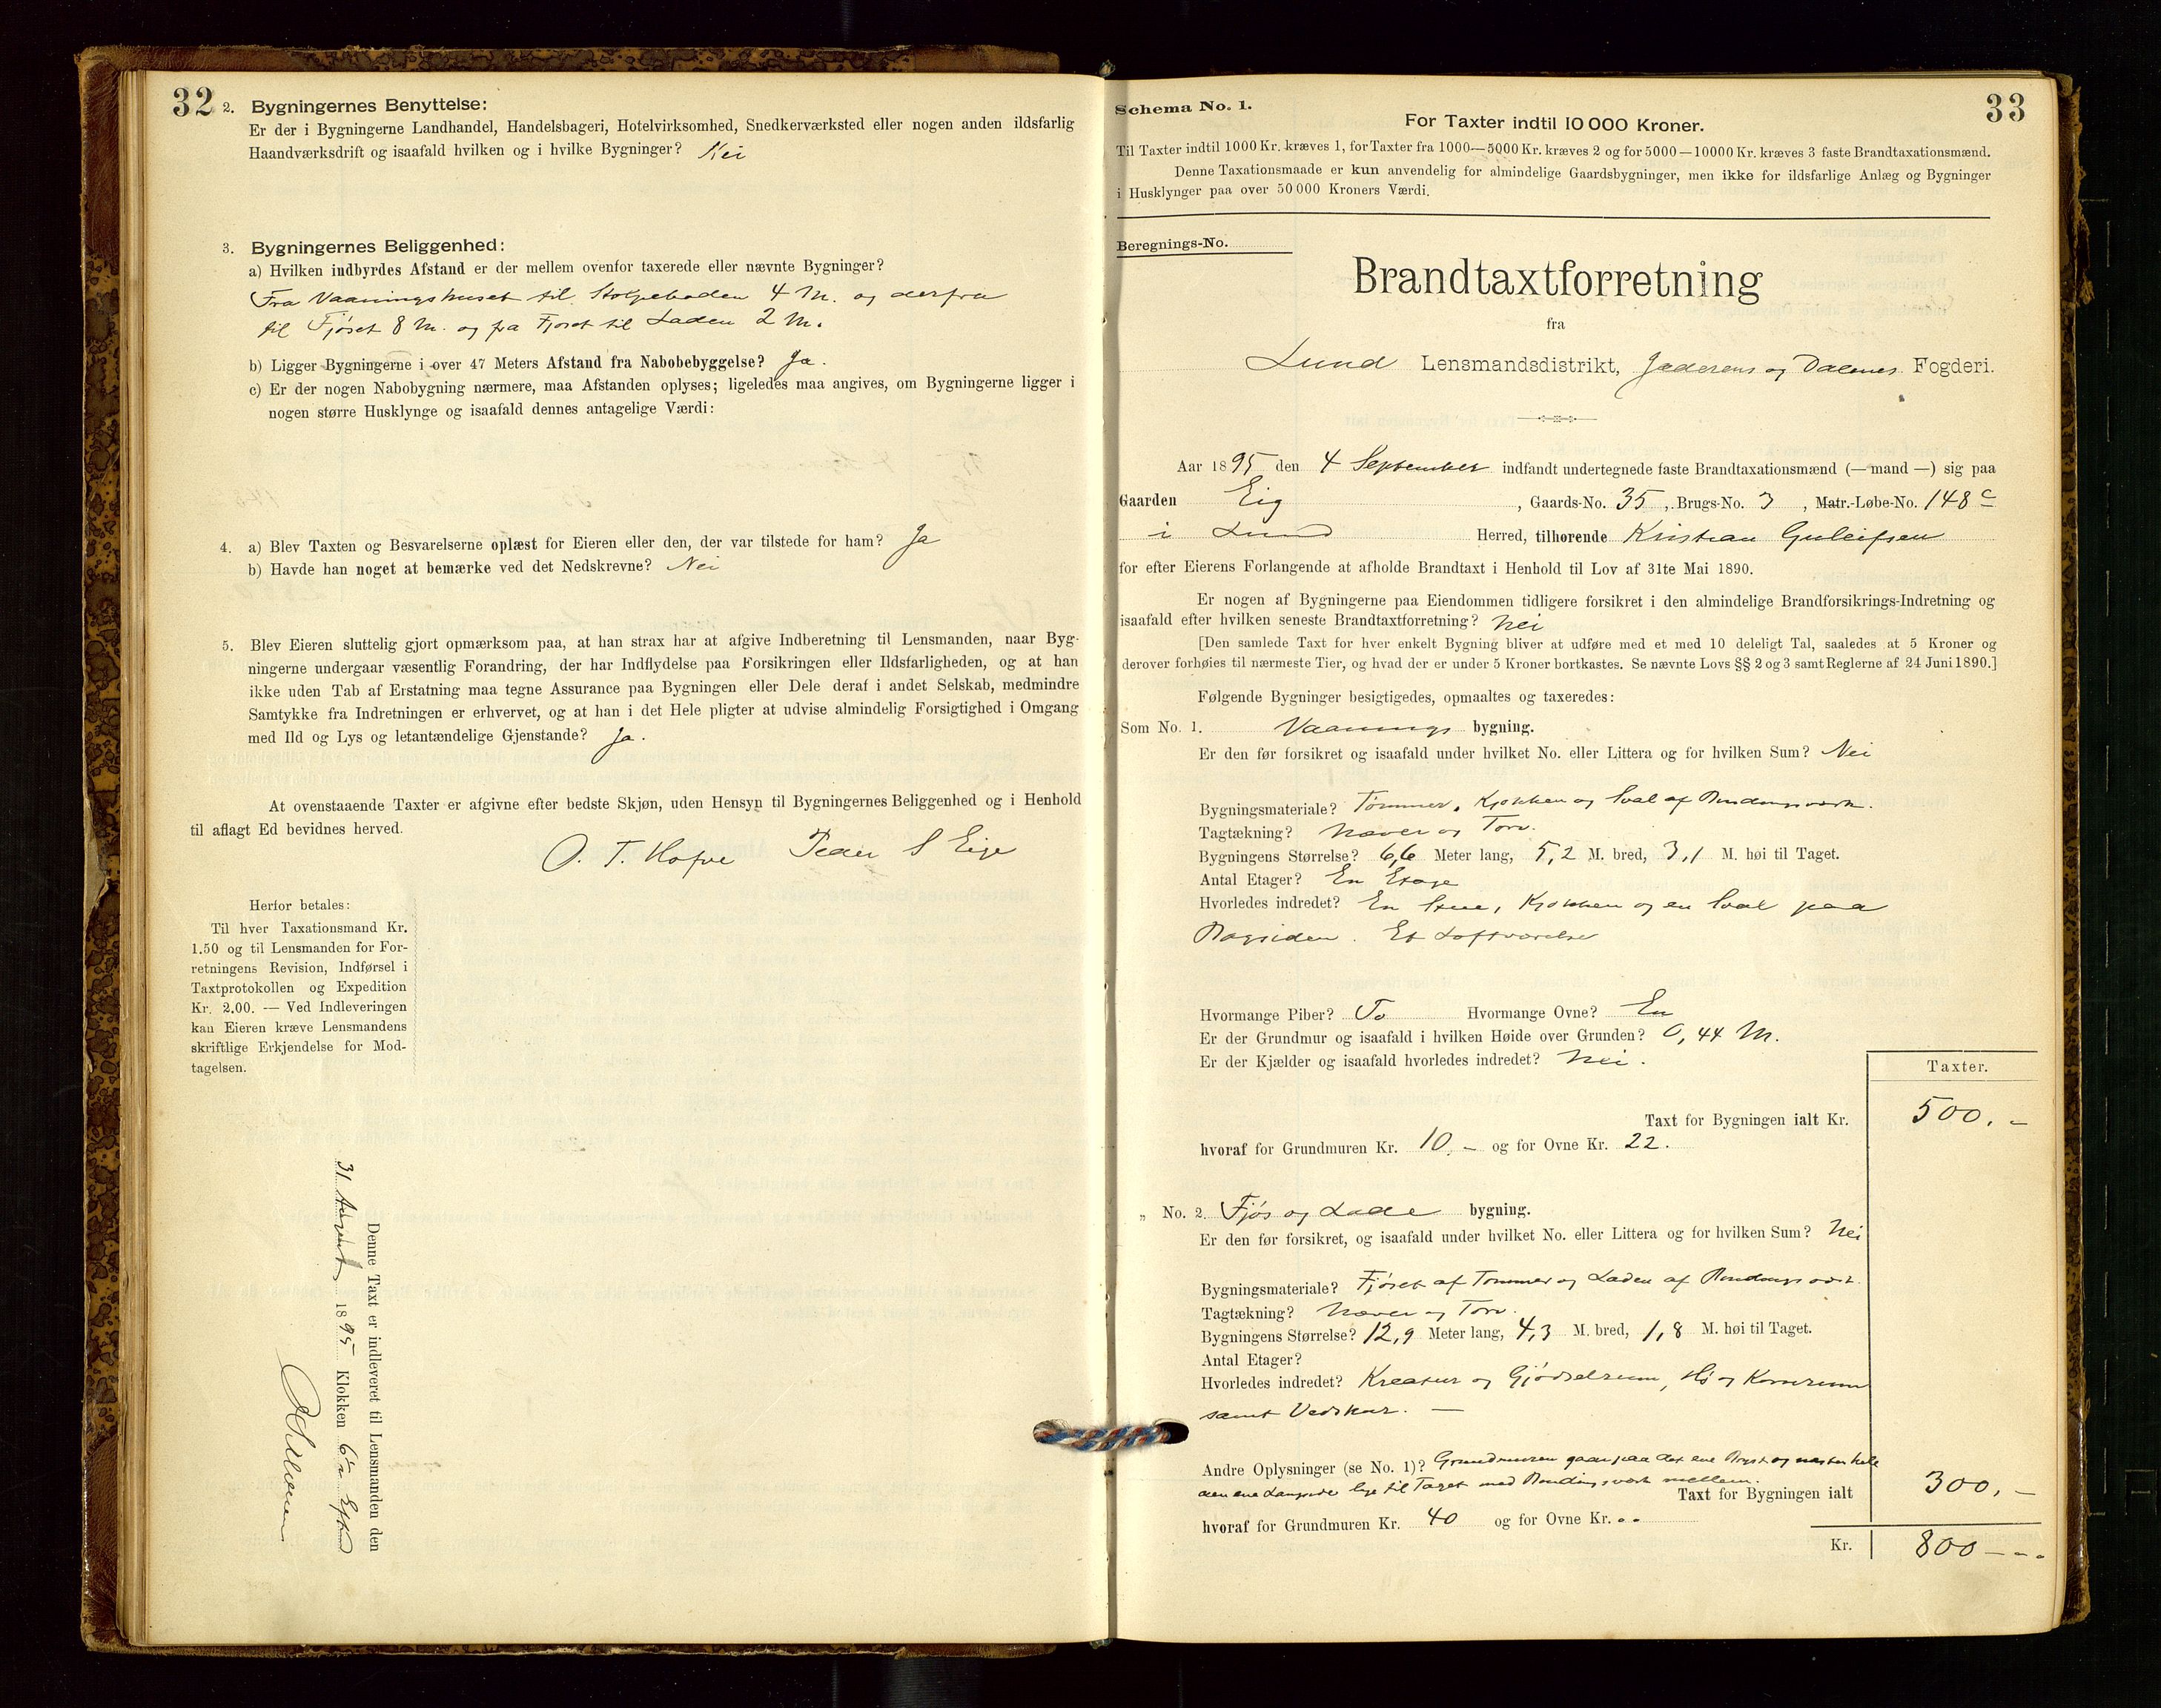 32
2. Bygningernes Benyttelse:
Er der i Bygningerne Landhandel, Handelsbageri, Hotelvirksomhed, Snedkerværksted eller nogen anden ildsfarlig
Haandværksdrift og isaafald hvilken og i hvilke Bygninger? Nei
3. Bygningernes Beliggenhed:
a) Hvilken indbyrdes Afstand er der mellem ovenfor taxerede eller nævnte Bygninger?
Fra Vaaningshuset til Stolpeboden 4 M. og derfra
til Fjøset 8 M. og fra Fjøset til Laden 2 M.
b) Ligger Bygningerne i over 47 Meters Afstand fra Nabobebyggelse? Ja.
c) Er der nogen Nabobygning nærmere, maa Afstanden oplyses; ligeledes maa angives, om Bygningerne ligger i
nogen større Husklynge og isaafald dennes antagelige Værdi:
4. a) Blev Taxten og Besvarelserne oplæst for Eieren eller den, der var tilstede for ham? Ja
b) Havde han noget at bemærke ved det Nedskrevne? Nei
5. Blev Eieren sluttelig gjort opmærksom paa, at han strax har at afgive Indberetning til Lensmanden, naar Byg-
ningerne undergaar væsentlig Forandring, der har Indflydelse paa Forsikringen eller Ildsfarligheden, og at han
ikke uden Tab af Erstatning maa tegne Assurance paa Bygningen eller Dele deraf i andet Selskab, medmindre
Samtykke fra Indretningen er erhvervet, og at han i det Hele pligter at udvise almindelig Forsigtighed i Omgang
med Ild og Lys og letantændelige Gjenstande? Ja.
At ovenstaaende Taxter er afgivne efter bedste Skjøn, uden Hensyn til Bygningernes Beliggenhed og i Henhold
til aflagt Ed bevidnes herved.
O. T. Hofve Peder S Eige
Herfor betales:
Til hver Taxationsmand Kr.
1.50 og til Lensmanden for For-
retningens Revision, Indførsel i
Taxtprotokollen og Expedition
Kr. 2.00. — Ved Indleveringen
kan Eieren kræve Lensmandens
skriftlige Erkjendelse for Mod-
tagelsen.
Denne Taxt er indleveret til Lensmanden den
31 August 1895 Klokken
33
Schema No. 1.
For Taxter indtil 10 000 Kroner.
Til Taxter indtil 1000 Kr. kræves 1, for Taxter fra 1000—5000 Kr. kræves 2 og for 5000—10000 Kr. kræves 3 faste Brandtaxationsmænd.
Denne Taxationsmaade er kun anvendelig for almindelige Gaardsbygninger, men ikke for ildsfarlige Anlæg og Bygninger
i Husklynger paa over 50 000 Kroners Værdi.
Beregnings-No.
Brandtaxtforretning
fra
Lund Lensmandsdistrikt, Jæderens og Dalenes Fogderi.
Aar 1895 den 4 September indfandt undertegnede faste Brandtaxationsmænd (—mand—) sig paa
Gaarden Eig, Gaards-No. 35, Brugs-No. 3, Matr.-Løbe-No. 148 c
i Lund Herred, tilhørende Kristian Guleifsen
for efter Eierens Forlangende at afholde Brandtaxt i Henhold til Lov af 31te Mai 1890.
Er nogen af Bygningerne paa Eiendommen tidligere forsikret i den almindelige Brandforsikrings-Indretning og
isaafald efter hvilken seneste Brandtaxtforretning? Nei
[Den samlede Taxt for hver enkelt Bygning bliver at udføre med et med 10 deleligt Tal, saaledes at 5 Kroner og
derover forhøies til nærmeste Tier, og hvad der er under 5 Kroner bortkastes. Se nævnte Lovs §§ 2 og 3 samt Reglerne af 24 Juni 1890.]
Følgende Bygninger besigtigedes, opmaaltes og taxeredes:
Som No. 1. Vaanings bygning.
Er den før forsikret og isaafald under hvilket No. eller Littera og for hvilken Sum? Nei
Bygningsmateriale? Tømmer, Kjøkken og Sval af Bindingsværk.
Tagtækning? Næver og Torv.
Bygningens Størrelse? 6,6 Meter lang, 5,2 M. bred, 3,1 M. høi til Taget.
Antal Etager? En Etage
Hvorledes indredet? En Stue, Kjøkken og en Sval paa
Bagsiden. Et Loftværelse
Hvormange Piber? To Hvormange Ovne? En
Er der Grundmur og isaafald i hvilken Høide over Grunden? 0,44 M.
Er der Kjælder og isaafald hvorledes indredet? Nei.
Taxter.
Taxt for Bygningen ialt Kr. 500.-
hvoraf for Grundmuren Kr. 10.- og for Ovne Kr. 22.
„ No. 2. Fjøs og Lade bygning.
Er den før forsikret, og isaafald under hvilket No. eller Littera og for hvilken Sum? Nei
Bygningsmateriale? Fjøset af Tømmer og Laden af Bindingsværk.
Tagtækning? Næver og Torv.
Bygningens Størrelse? 12,9 Meter lang, 4,3 M. bred, 1,8 M. høi til Taget.
Antal Etager?
Hvorledes indredet? Kreatur og Gjødselrum, Hø og Kornrum
samt Vedskur. —
Andre Oplysninger (se No. 1)? Grundmuren gaar paa det ene Bryst og næsten hele
den ene Langside lige til Taget med Bindingsværk mellem.
Taxt for Bygningen ialt 300.-
hvoraf for Grundmuren Kr. 40 og for Ovne Kr. „
Kr. 800 - - -